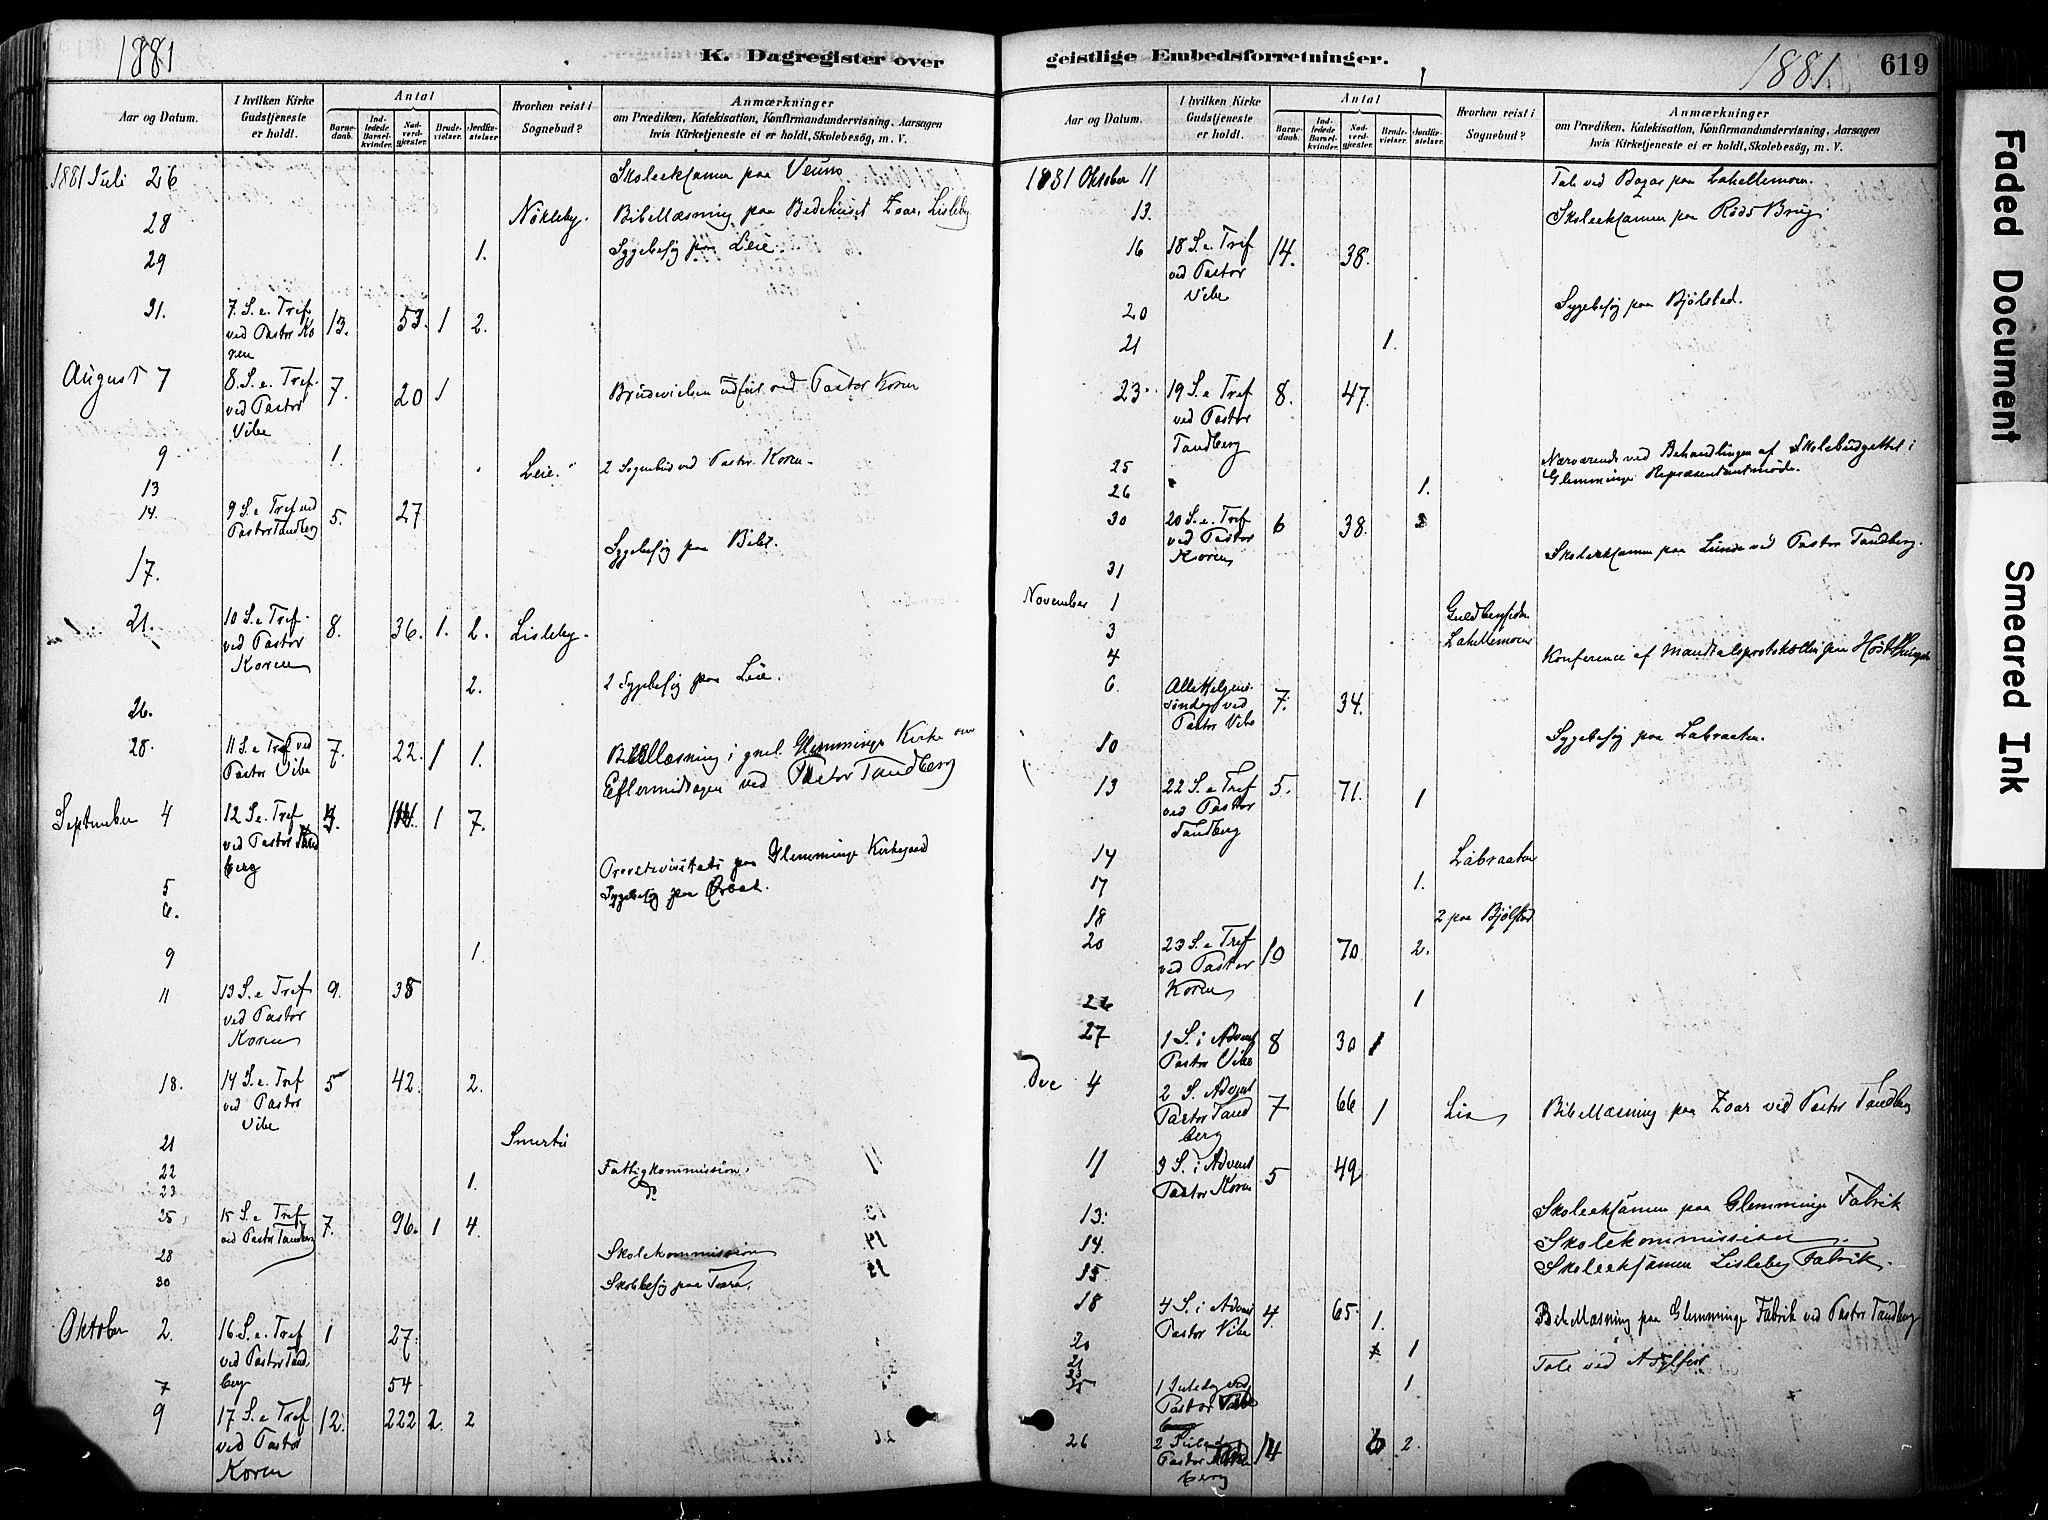 1881
K. Dagregister over
Aar og Datum.
I hvilken Kirke Gudstjeneste er holdt.
Antal
Barnedaab.
Indledede Barselkvinder.
Nadverdgjester.
Brudevielser.
Jordfæstelser
Hvorhen reist i Sognebud?
Anmærkninger
om Prædiken, Katekisation, Konfirmandundervisning, Aarsagen
hvis Kirketjeneste ei er holdt, Skolebesøg, m. V.
1881 Juli 26 Skoleeksamen paa Veum
28 Nökleby. Bibellæsning paa Bedehuset Zoar, Lisleby
29 1. Sygebesøg paa Leie.
31. 7. S. e. Tref ved Pastor Koren 13. 53. 1 2.
August 7 8. S. e. Tref. ved Pastor Vibe 7. 20 1 Brudevielsen udført ved Pastor Koren
9 1. Leie. 2 Sognebud ved Pastor Koren.
13
14. 9 S. e. Tref ved Pastor Tandberg 5. 27
17. Sygebesøg paa
21. 10 S. e. Tref. ved Pastor Koren 8. 36. 1. 2. Lisleby.
26. 2. 2 Sygebesøg paa Leie.
28. 11 S. e. Tref ved Pastor Vibe 7. 22. 1 1. Bibellæsning i gml. Glemminge Kirke om
Eftermidagen ved Pastor Tandberg
September 4 12 S. e. Tref ved Pastor Tandberg 1 7.
5 Provstevisitats paa Glemminge Kirkegaard
6. Sygebesøg paa
9 1.
11 13 S. e. Tref ved Pastor Koren 9. 38
18. 14 S. e. Tref ved Pastor Vibe 5 42. 2.
21 Smertu
22 Fattigkommission.
23 1. do
25 15 S. e. Tref ved Pastor Tandberg 7. 96. 1 4.
28 Skolekommission
30 Skolebesøg paa Trara.
Oktober 2. 16. S. e. Tref ved Pastor Tandberg 1 27.
7 54
9 17 S. e. Tref ved Pastor Koren 12. 222 2. 2
geistlige Embedsforretninger.
1881
619
Aar og Datum.
I hvilken Kirke Gudstjeneste er holdt.
Antal
Barnedaab.
Indledede Barselkvinder.
Nadverdgjester.
Brudevielser.
Jordfæstelser.
Hvorhen reist i Sognebud?
Anmærkninger
om Prædiken, Katekisation, Konfirmandundervisning, Aarsagen
hvis Kirketjeneste ei er holdt, Skolebesøg, m. V.
1881 Oktober 11 Tale ved Bazar paa Lahellemoen.
13. Skoleeksamen paa Røds Brug
16 18 S. e. Tref ved Pastor Vibe 14. 38.
20 Sygebesøg paa Bjølstad.
21 1.
23. 19 S. e. Tref ved Pastor Tandberg 8. 47.
25 Nærværende ved Behandlingen af Skolebudgettet i
Glemminge Repræsentantmøde.
26 1.
30 20 S. e. Tref ved Pastor Koren 6 38.
31 Skoleeksamen paa Lunde ved Pastor Tandberg.
November 1
3 Lahellemoen
4 Konference af Mandtalsprotokollen paa
6. Alle Helgens søndag ved Pastor Vibe 7. 34.
10 Sygebesøg paa Labraaten.
13 22 S. e. Tref ved Pastor Tandberg 5. 71. 1
14 Labraaten
17 1.
18 2 paa Bjølstad
20 23 S. e. Tref ved Pastor Koren 10 70 2.
1
27 1 S. i Advent Pastor Vibe 8 30 1
Dec 4 2 S. Advent Pastor Tandberg 7 66 1 Bibellæsning paa Zoar ved Pastor Tandberg
11 3 S. i Advent Pastor Koren 5 49
13. Skoleeksamen paa Glemminge Fabrik
14. Skolekommission
15 Skoleeksamen Lisleby Fabrik.
18 4 S. i Advent Pastor Vibe 4 65. 1. Bibellæsning paa Glemminge Fabrik ved Pastor Tandberg
20 1
21 Tale ved Asylfest
23 1
25 1 Juledag ved Pastor
26 2 Juledag Pastor 14 2.
Faded Document
Smeared Ink